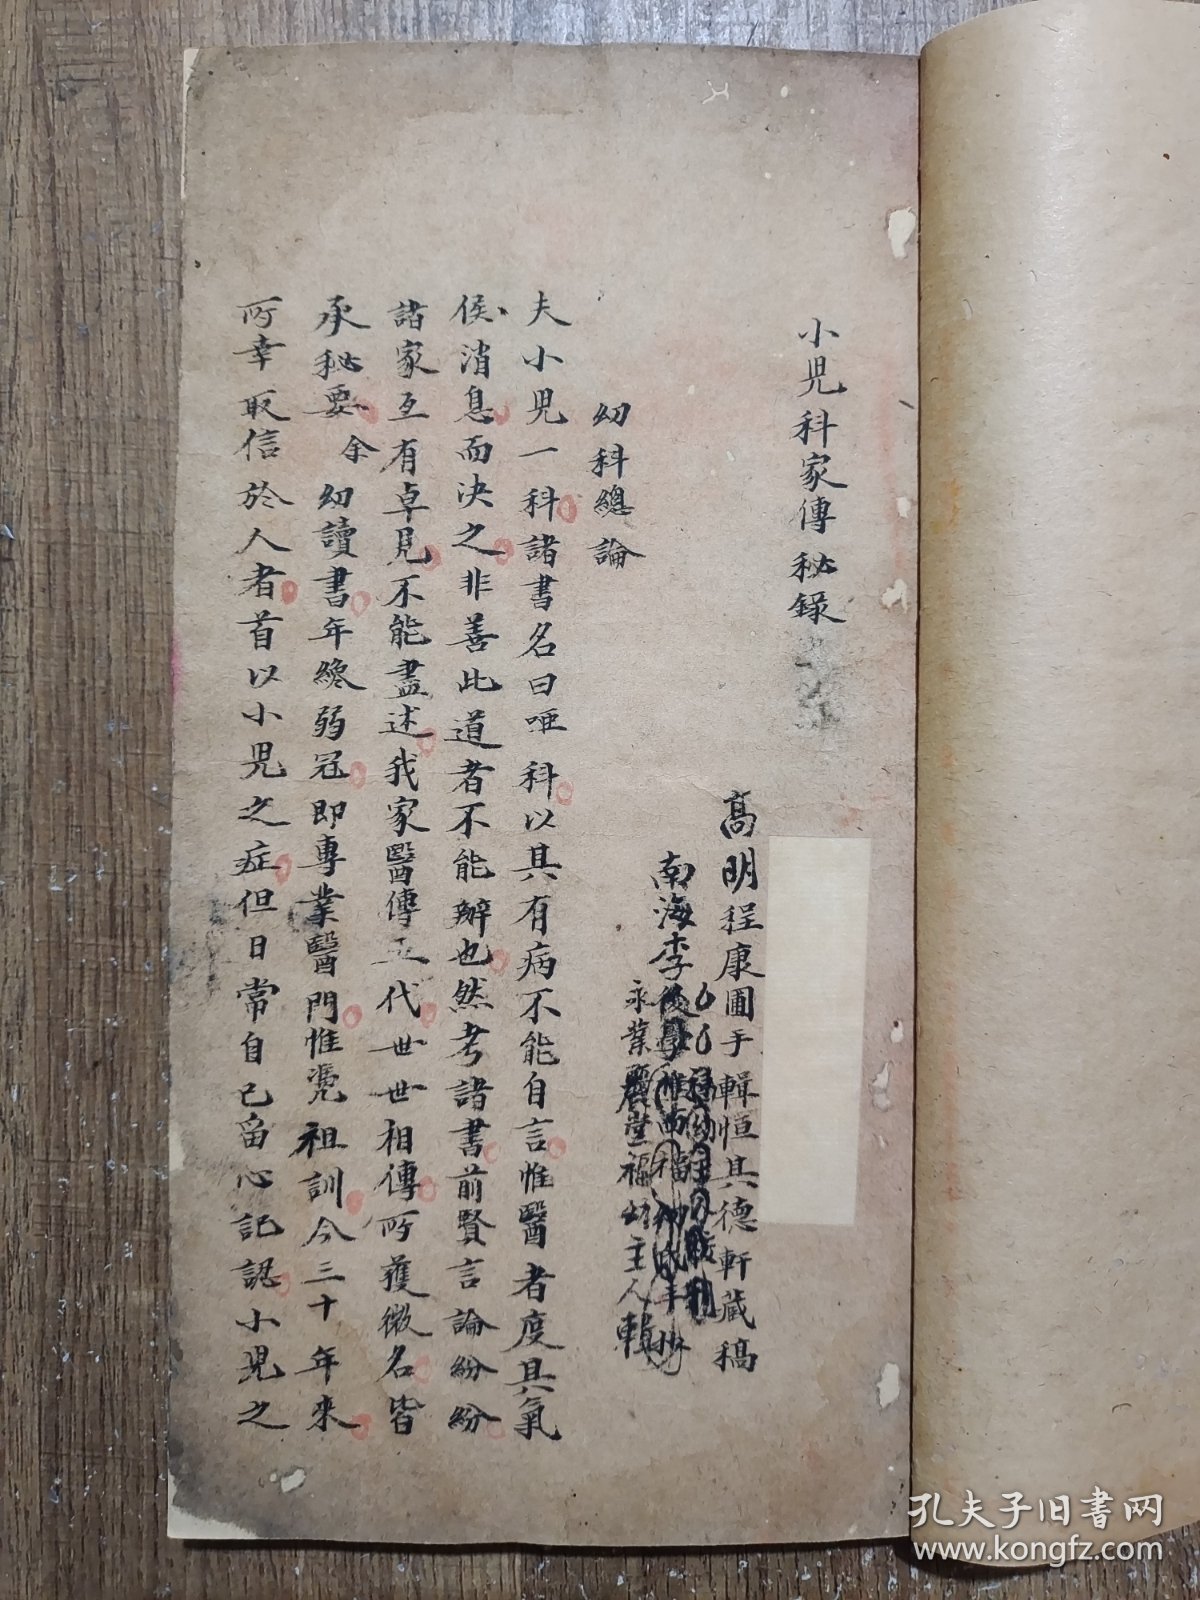 小児科家傳秘錄
高明程康圃手輯恒其德軒藏稿
南海李後學
永業麗堂福幼主人輯
幼科總論
夫小児一科諸書名曰啞科以其有病不能自言惟醫者度其氣
侯消息而決之非善此道者不能辦也然考諸書前賢言論紛紛
諸家互有卓見不能盡述我家醫傳五代世世相傳所獲微名皆
承秘要余幼讀書年纔弱冠即專業醫門惟凴祖訓今三十年來
所幸取信於人者首以小児之症但日常自己畱心記認小児之
孔夫子旧书网
www.kongfz.com